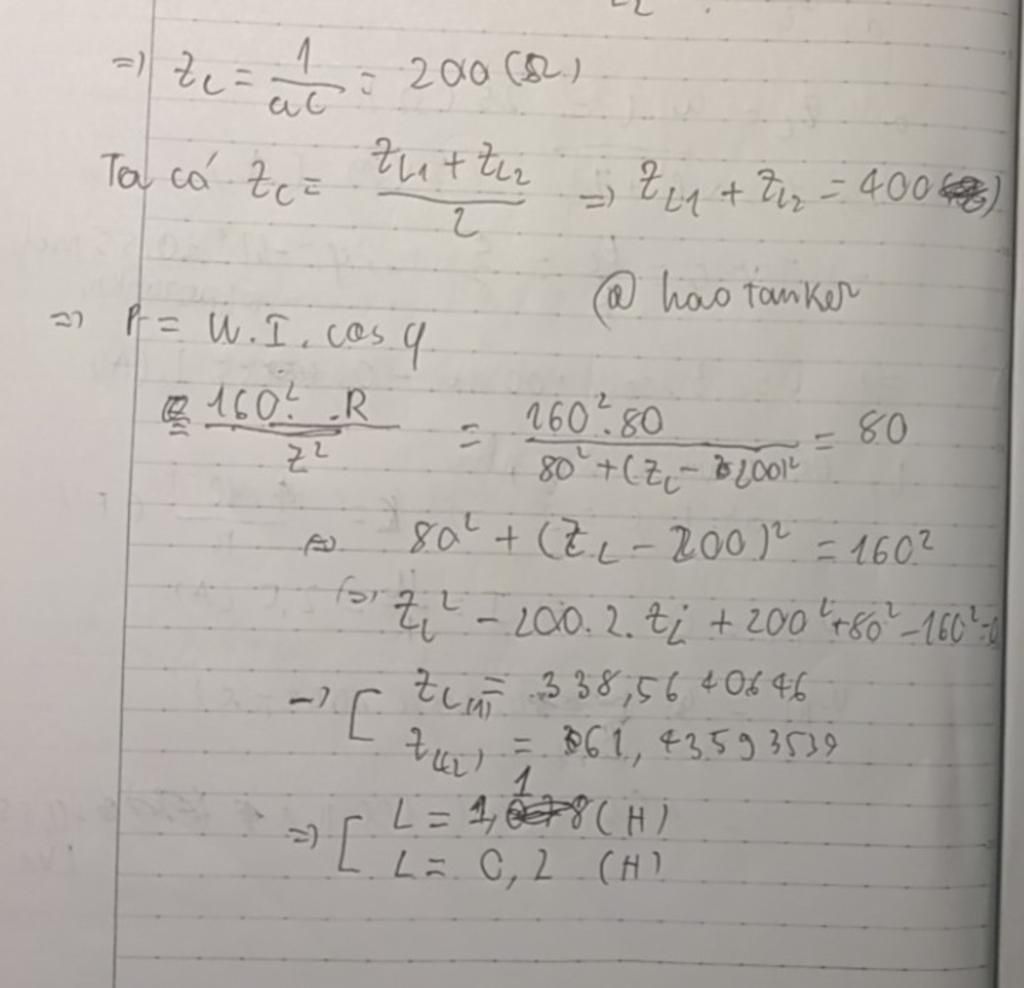 =) Z_C = 1/ωC = 200 (Ω)
Ta có Z_C = (Z_L1 + Z_L2)/2 => Z_L1 + Z_L2 = 400
@haotanker
=> P = U.I.cos φ
= 160².R/Z² = 160².80/(80² + (Z_L - 200)²) = 80
<=> 80² + (Z_L - 200)² = 160²
(=) Z_L² - 200.2.Z_L + 200² + 80² - 160² = 0
-> [ Z_L(1) = 338,5640646
Z_L(2) = 61,43593539
=> [ L = 1,1 (H)
L = 0,2 (H)